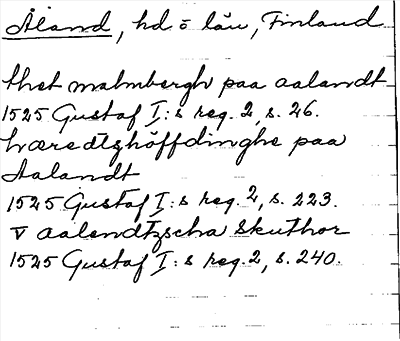 Åland, hd o län, Finland
thet malmbergh paa aalandt
1525 Gustaf I:s reg. 2, s. 26.
hæredtzhöffdinghe paa
Aalandt
1525 Gustaf I:s reg. 2, s. 223.
V aalendtzscha skuthor
1525 Gustaf I:s reg. 2, s. 240.